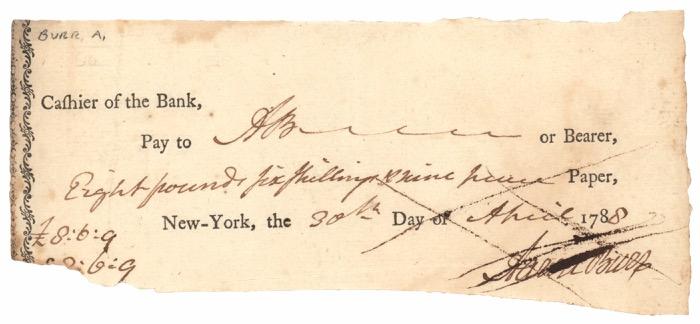 BURR, A,
Caſhier of the Bank,
Pay to AB or Bearer,
Eight pounds ſix ſhillings & nine pence Paper,
New-York, the 30th Day of April 1788
£8:6:9
£8:6:9
Aaron Burr